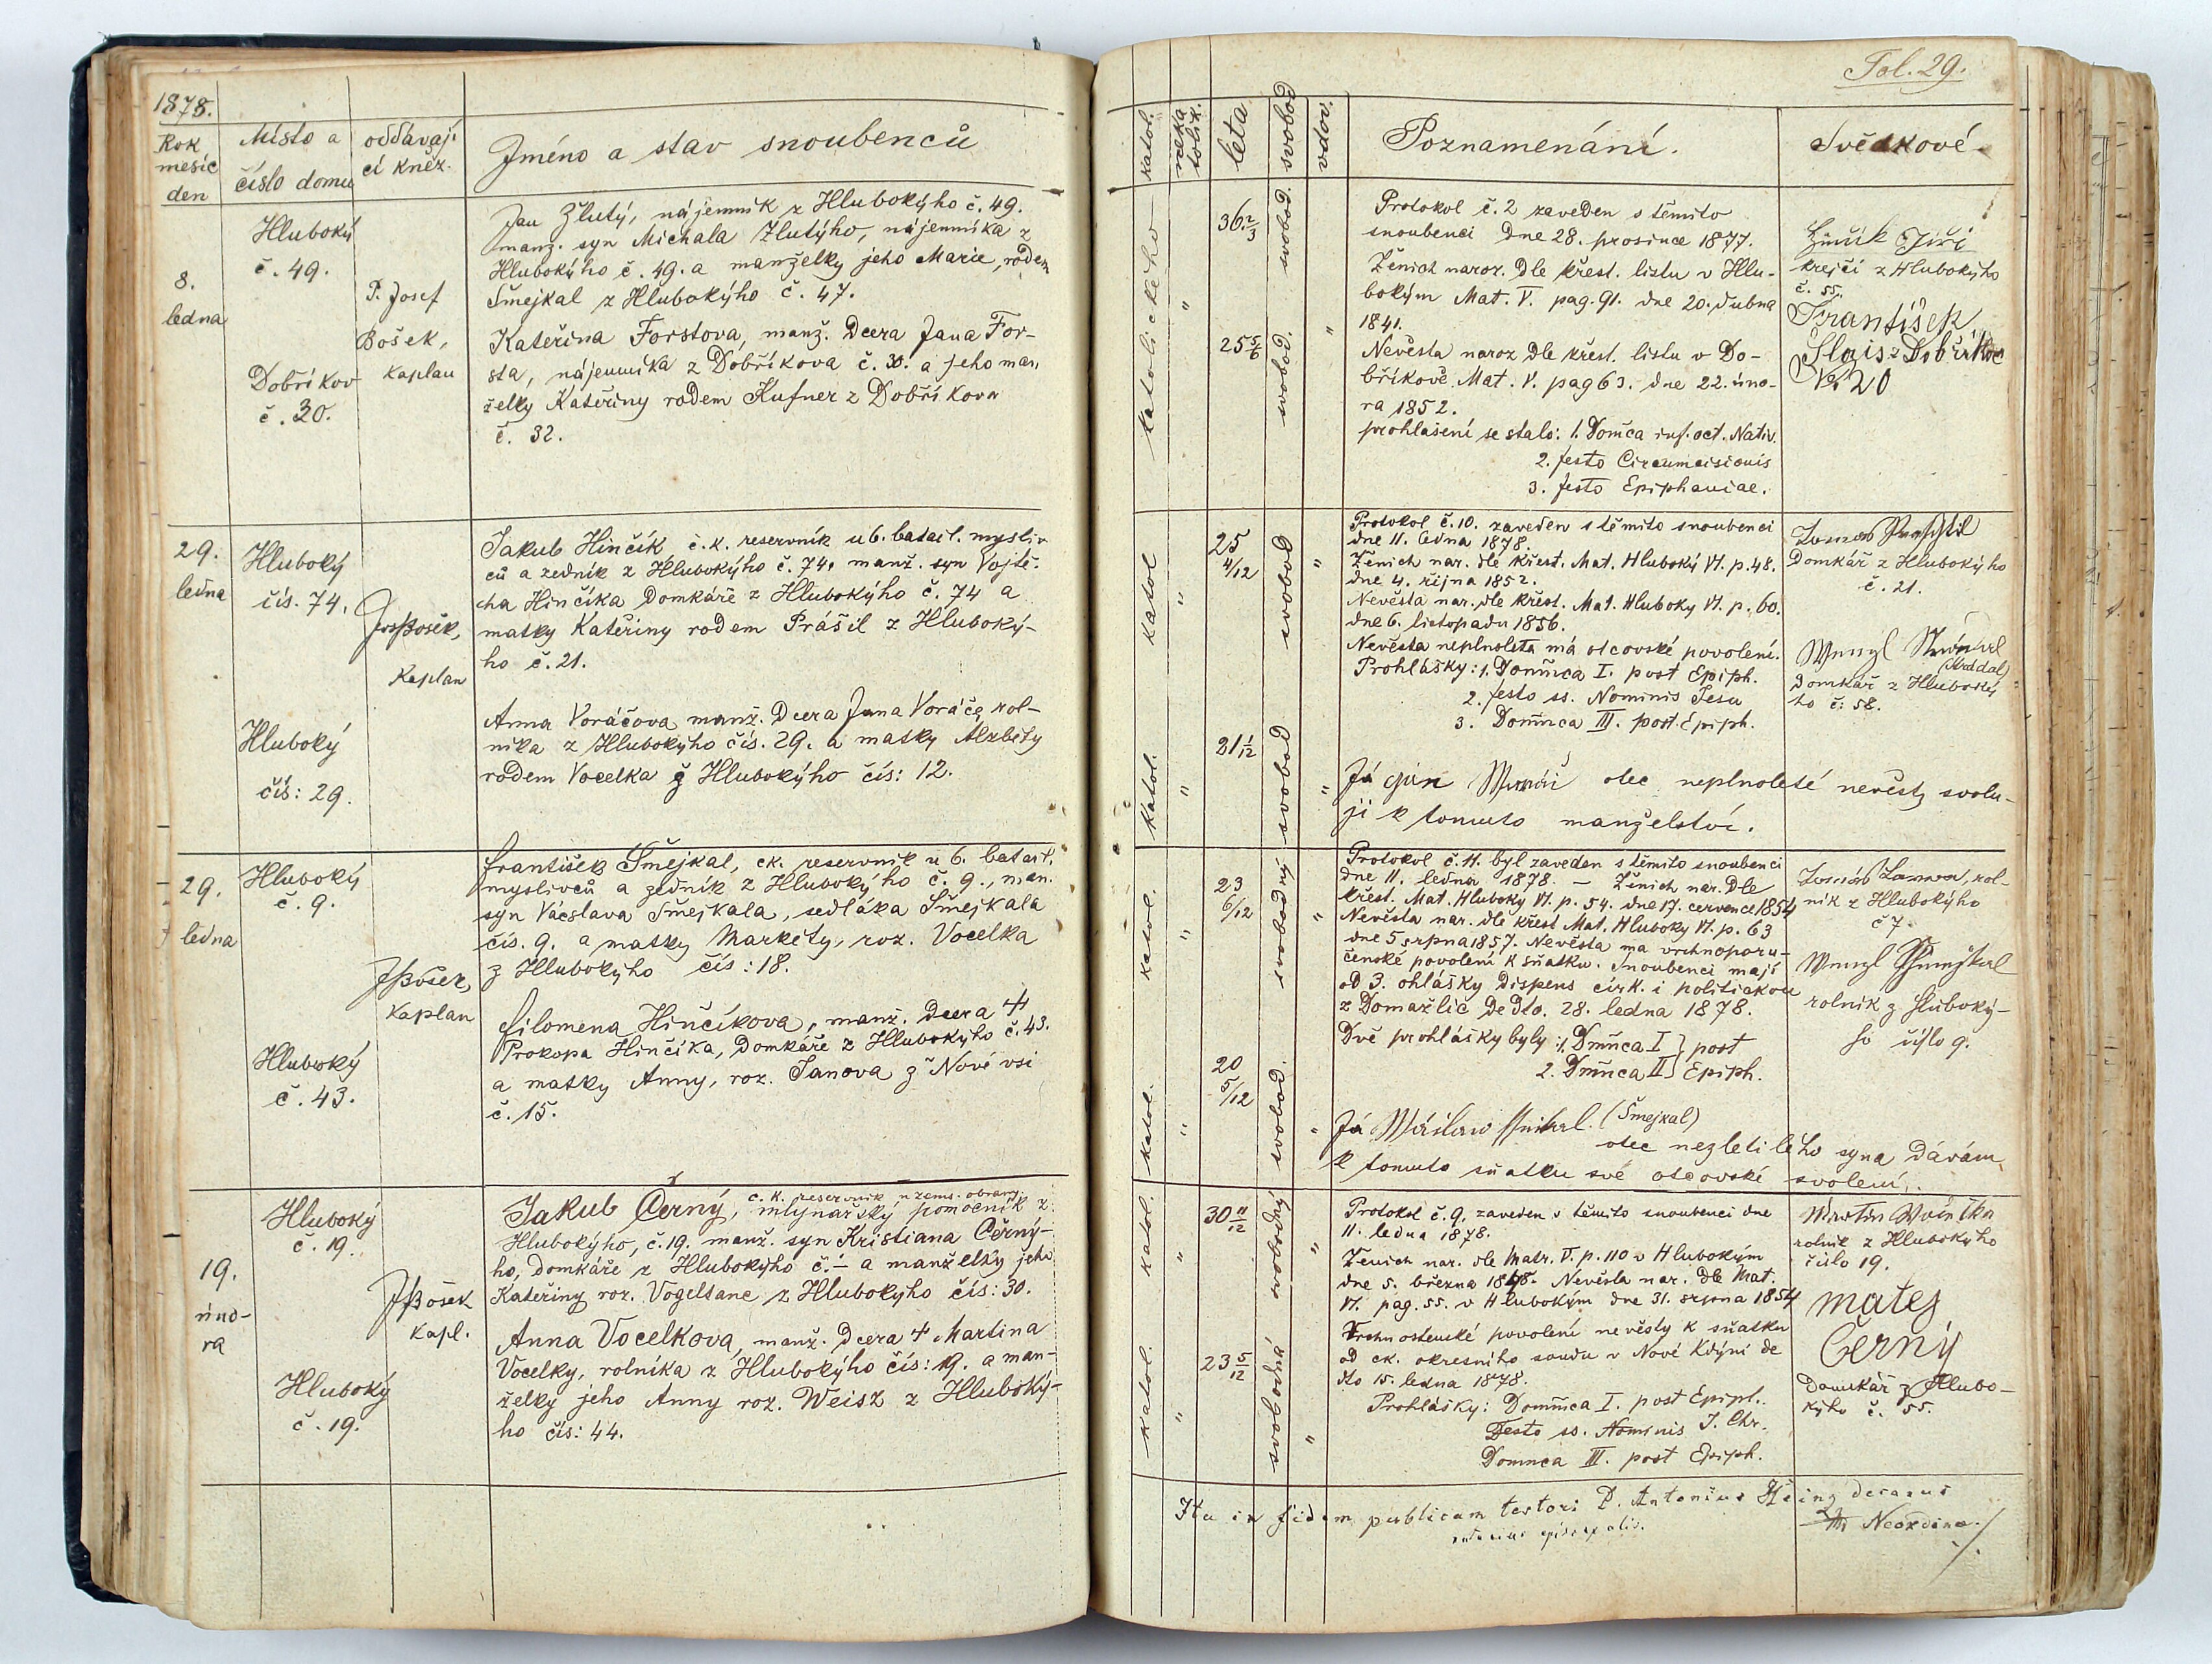 1878.
Rok
měsíc
den
Místo a
číslo domu
oddávají
cí kněz.
Jméno a stav snoubenců
8.
ledna
Hluboký
č. 49.
Dobříkov
č. 30.
P. Josef
Bošek,
kaplan
Jan Žlutý, nájemník z Hlubokýho č. 49.
manž. syn Michala Žlutýho, nájemníka z
Hlubokýho č. 49. a manželky jeho Marie, rodem
Šmejkal z Hlubokýho č. 47.
Kateřina Forstova, manž. Dcera Jana For-
sta, nájemníka z Dobříkova č. 30. a jeho man.
želky Kateřiny rodem Kufner z Dobříkova
č. 32.
29.
ledna
Hluboký
čís. 74.
Hluboký
čís: 29.
Jos Bošek,
Kaplan
Jakub Hinčík c. k. reservník u 6. batail. mysliv
ců a zedník z Hlubokýho č. 74. manž. syn Vojtě-
cha Hinčíka Domkáře z Hlubokýho č. 74 a
matky Kateřiny rodem Prášil z Hluboký-
ho č. 21.
Anna Voráčova manž. Dcera Jana Voráče rol-
níka z Hlubokýho čís. 29. a matky Alzběty
rodem Vocelka z Hlubokýho čís: 12.
29.
ledna
Hluboký
č. 9.
Hluboký
č. 43.
J Bošek,
Kaplan
František Šmejkal, ck. reservník u 6. batail.
myslivců a zedník z Hlubokýho č. 9., man.
syn Vácslava Šmejkala, sedláka Šmejkala
čís. 9. a matky Markéty, roz. Vocelka
z Hlubokýho čís: 18.
Filomena Hinčíkova, manž. dcera †
Prokopa Hinčíka, Domkáře z Hlubokýho č. 43.
a matky Anny, roz. Janova z Nové vsi
č. 15.
19.
úno-
ra
Hluboký
č. 19.
Hluboký
č. 19.
J Bošek
kapl.
c. k. reservník u zems. obrany
Jakub Černý, mlynařský pomocník z
Hlubokýho, č. 19. manž. syn Kristiana Černý-
ho, domkáře z Hlubokýho č. – a manželky jeho
Kateřiny roz. Vogeltanc z Hlubokýho čís: 30.
Anna Vocelkova, manž. Dcera † Martina
Vocelky, rolníka z Hlubokýho čís: 19. a man-
želky jeho Anny roz. Weisz z Hluboký-
ho čís: 44.
Fol. 29.
katol.
neka
tolík.
léta
svobod
vdov.
Poznamenání.
Svědkové
katolického
"
36 2/3
svobod.
25 5/6
svobod.
"
Protokol č. 2 zaveden s těmito
snoubenci Dne 28. prosince 1877.
Ženich naroz. Dle křest. listu v Hlu-
bokým Mat. V. pag. 91. dne 20. dubna
1841.
Nevěsta naroz Dle křest. listu v Do-
bříkově Mat. V. pag 63. dne 22. úno-
ra 1852.
prohlašení se stalo: 1. Domca inf. oct. Nativ.
2. festo Circumcisionis
3. festo Epiphaniae.
Jiří
krejčí z Hlubokýho
č. 55.
František
Šlais z Dobříkov
No 20
katol
"
25
4/12
svobod
"
katol.
"
21 1/12
svobod
"
Protokol č. 10. zaveden s těmito snoubenci
dne 11. ledna 1878.
Ženich nar. dle křest. Mat. Hluboký VI. p. 48.
dne 4. října 1852.
Nevěsta nar. dle křest. Mat. Hluboky VI. p. 60.
dne 6. listopadu 1856.
Nevěsta neplnoleta má otcovské povolení.
Prohlášky: 1. Domca I. post Epiph.
2. festo ss. Nominis Jesu
3. Domca III. post. Epiph.
Já otec neplnoleté nevěsty svolu-
ji k tomuto manželství.
Domkář z Hlubokýho
č. 21.
Wenzl
Domkář z Hluboký
ho č: 58.
katol.
"
23
6/12
svobodný
"
katol.
"
20
5/12
svobod.
"
Protokol č. 11. byl zaveden s těmito snoubenci
dne 11. ledna 1878. – Ženich nar. Dle
křest. Mat. Hluboky VI. p. 54. dne 17. cervence 1854
Nevěsta nar. dle křest Mat. Hluboky VI. p. 63
dne 5 srpna 1857. Nevěsta ma vrchnoporu-
čenské povolení k sňatku. Snoubenci mají
od 3. ohlášky Dispens církv. i politickou
z Domažlic De Dto. 28. ledna 1878.
Dvě prohlášky byly: 1. Dmnca I } post
2. Dmnca II } Epiph.
Já (Šmejkal)
otec nezletilého syna dávám
k tomuto sňatku své otcovské svolení.
rol-
ník z Hlubokýho
č 7.
Wenzl
rolník z Hluboký-
ho číslo 9.
katol.
"
30 11/12
svobodný
"
katol.
"
23 5/12
svobodná
"
Protokol č. 9. zaveden s těmito snoubenci dne
11. ledna 1878.
Ženich nar. dle Matr. V. p. 110 v Hlubokým
dne 5. března 1848. Nevěsta nar. Dle Mat.
VI. pag. 55. v Hlubokým dne 31. srpna 1854
povolení nevěsty k sňatku
od ck. okresního soudu v Nové Kdýni de
dto 15. ledna 1878.
Prohlášky: Domnca I. post Epiph.
Festo ss. Nominis J. Chr.
Domnca III. post Epiph.
Martin
rolník z Hlubokýho
číslo 19.
matej
Černý
Domkář z Hlubo-
kýho č. 55.
Ita in fidem publicam testori P. Antonius decanus